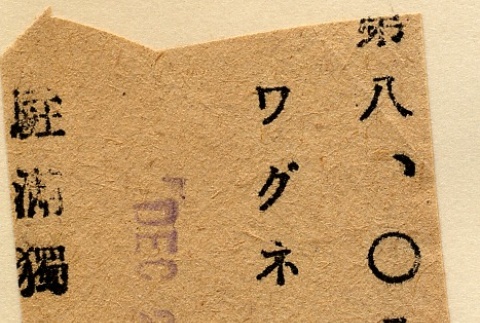 第八、〇
ワグネ
DEC 2
駐満獨